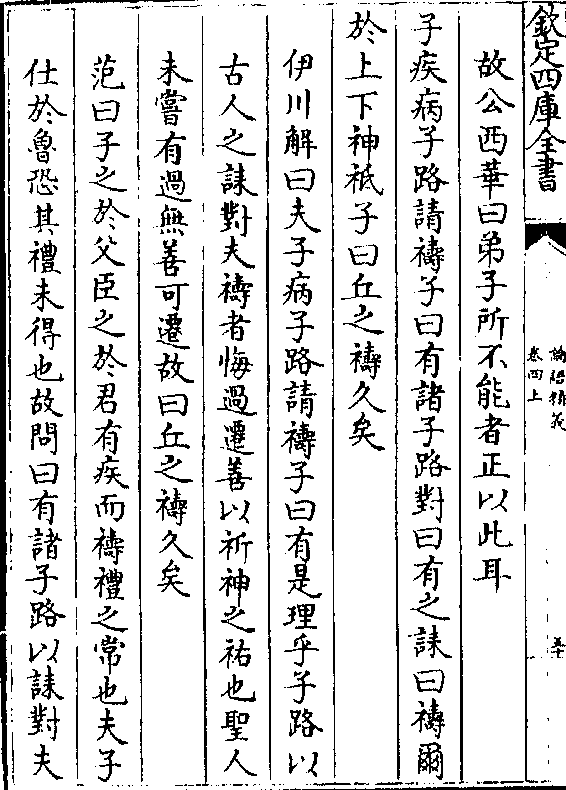 欽定四庫全書
論語精義
卷四上
五十
故公西華曰弟子所不能者正以此耳
子疾病子路請禱子曰有諸子路對曰有之誄曰禱爾
於上下神祗子曰丘之禱久矣
伊川解曰夫子病子路請禱子曰有是理乎子路以
古人之誄對夫禱者悔過遷善以祈神之祐也聖人
未嘗有過無善可遷故曰丘之禱久矣
范曰子之於父臣之於君有疾而禱禮之常也夫子
仕於魯恐其禮未得也故問曰有諸子路以誄對夫